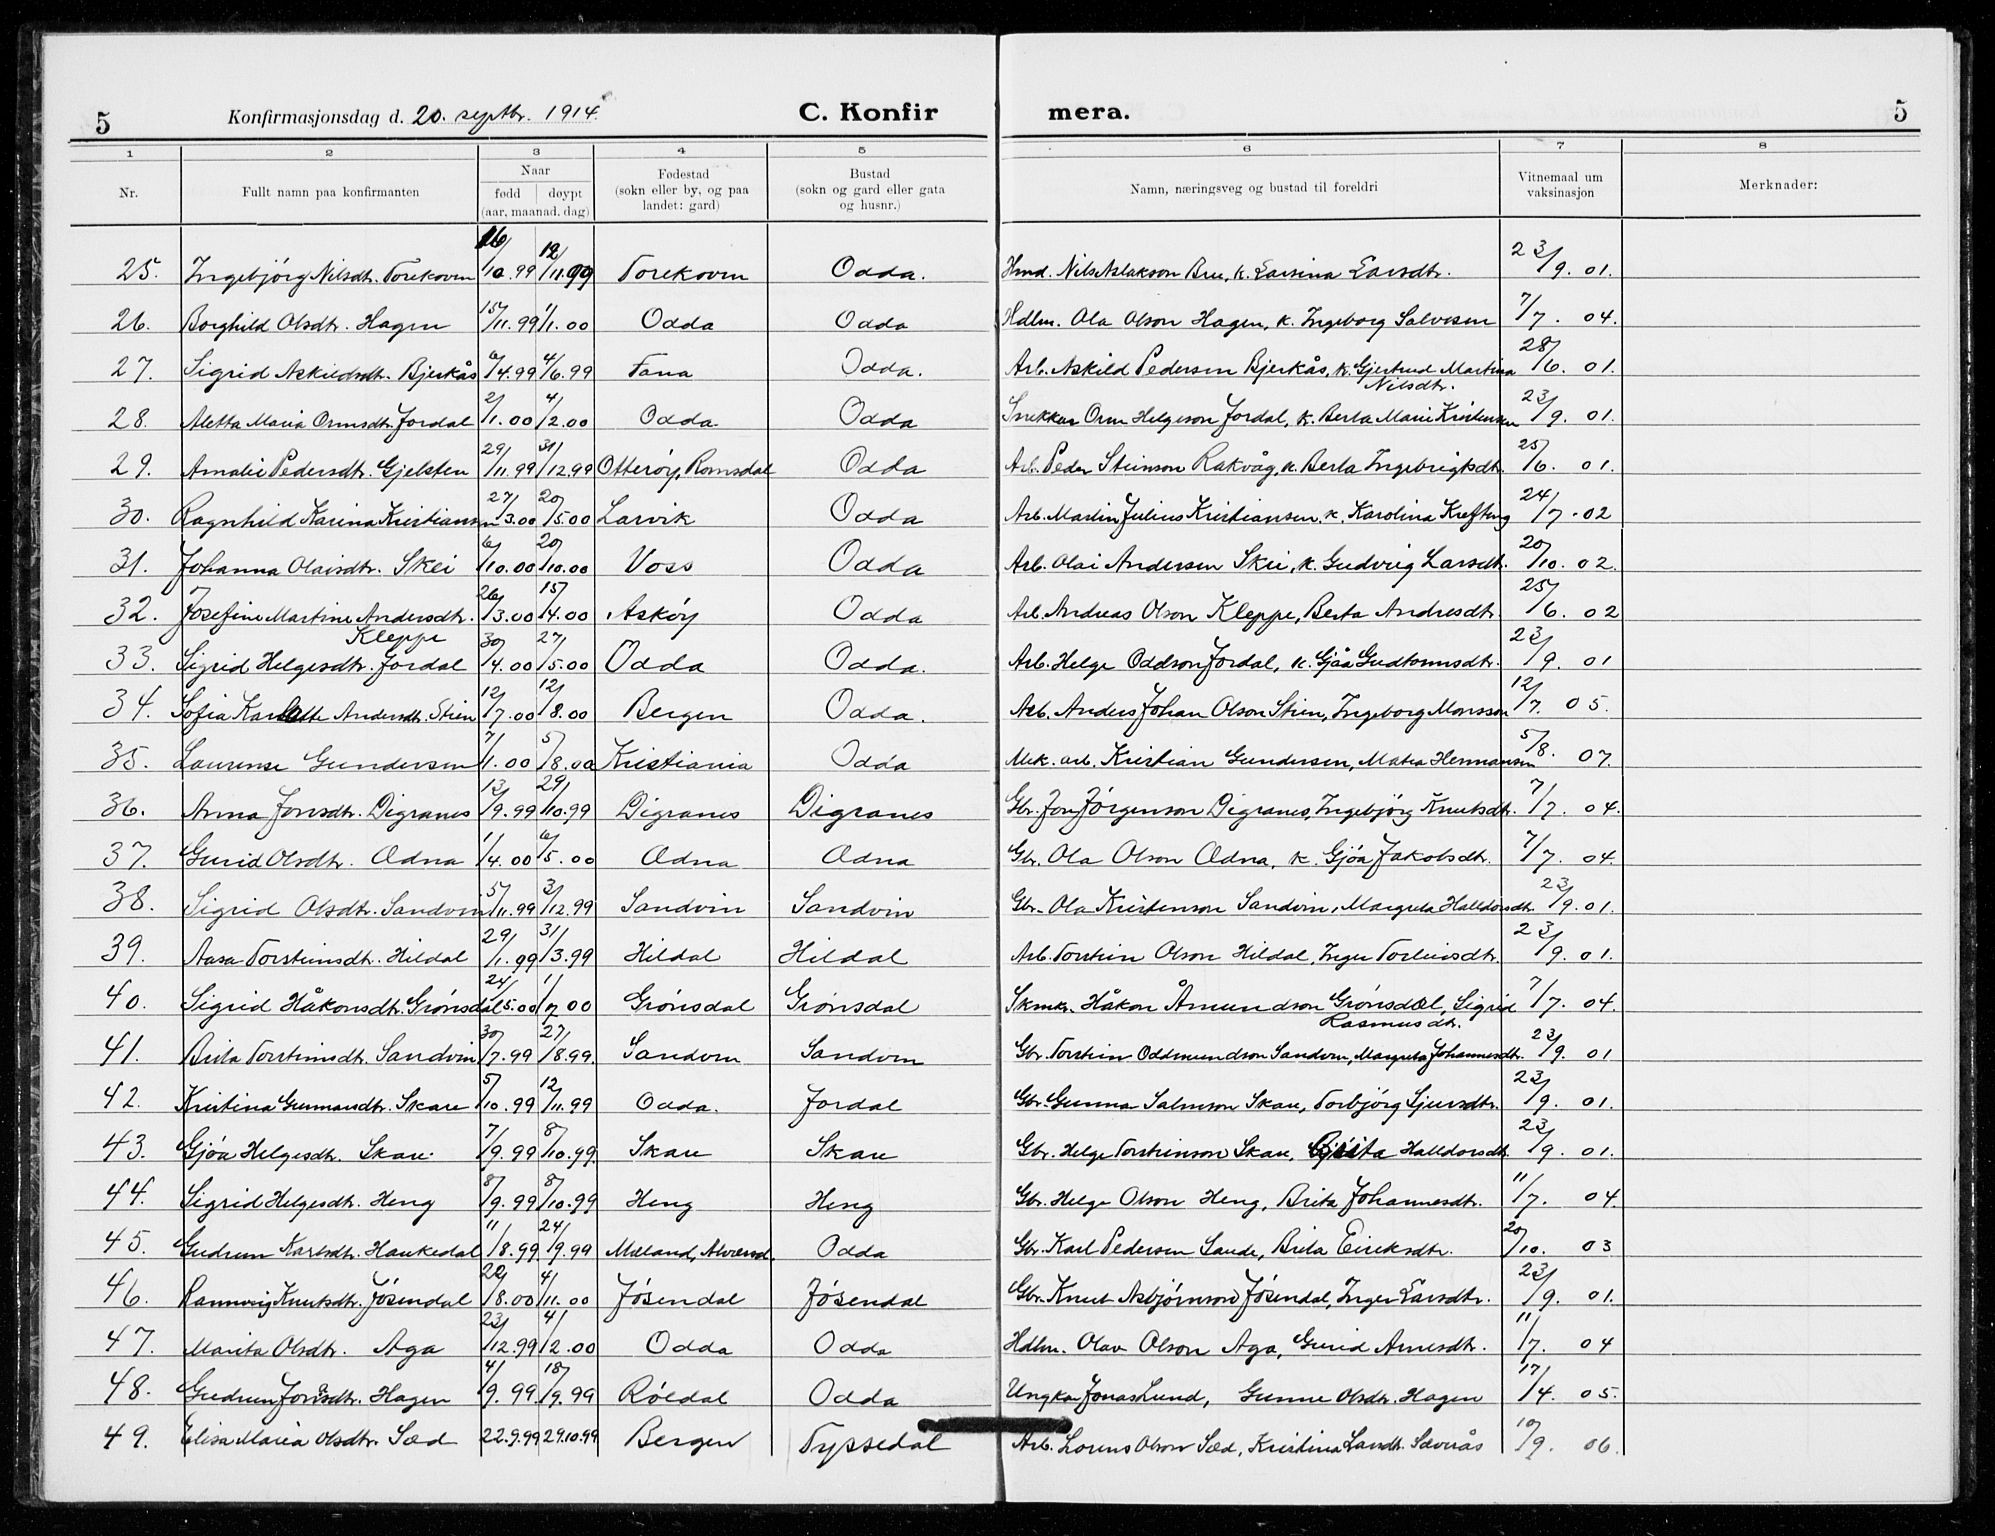 5 Konfirmasjonsdag d. 20. septbr. 1914. C. Konfirmera. 5
1 2 3 4 5 6 7 8
Nr. Fullt namn paa konfirmanten Naar fødd døypt (aar, maanad, dag) Fødestad (sokn eller by, og paa landet: gard) Bustad (sokn og gard eller gata og husnr.) Namn, næringsveg og bustad til foreldri Vitnemaal um vaksinasjon Merknader:
25. Ingebjörg Nilsdtr. Torekoven 16/10.99 12/11.99 Torekoven Odda. Hmd. Nils Aslakson Bru, k. Larsina Larsdtr. 23/9. 01.
26. Borghild Olsdtr. Hagen 15/11.99 1/1.00 Odda Odda Hdlm. Ola Olson Hagen, k. Ingeborg Salvesen 7/7. 04.
27. Sigrid Askildsdtr. Bjerkås 6/4.99 4/6.99 Fana Odda. Arb. Askild Pedersen Bjerkås, k. Gjertrud Martina Nilsdtr. 28/6. 01.
28. Aletta Maria Ormsdtr. Jordal 2/1.00 4/2.00 Odda. Odda Snekkar Orm Helgeson Jordal, k. Berta Marie Kristensen 23/9. 01.
29. Amalie Pedersdtr. Gjelsten 29/11.99 31/12.99 Otteröy, Romsdal Odda Arb. Peder Steinson Rakvåg, k. Berta Ingebrigtsdtr. 25/6. 01.
30. Ragnhild Karina Kristiansen 27/3.00 20/5.00 Larvik Odda Arb. Martin Julius Kristiansen, k. Karolina Krefting 24/7.02
31. Johanna Olaisdtr. Skei 6/10.00 20/10.00 Voss Odda Arb. Olai Andersen Skei, k. Gudvig Larsdtr. 20/10. 02.
32. Josefine Martine Andersdtr. Kleppe 26/3.00 15/4.00 Asköy Odda Arb. Andreas Olson Kleppe, Berta Andresdtr. 25/6. 02
33. Sigrid Helgesdtr. Jordal 30/4.00 27/5.00 Odda Odda. Arb. Helge Oddson Jordal, k. Gjåa Gudtormsdtr. 23/9. 01
34. Sofia Karlotte Andersdtr. Stien 12/7.00 12/8.00 Bergen Odda. Arb. Anders Johan Olson Stien, Ingeborg Monsson 12/7. 05.
35. Laurense Gundersen 7/1.00 5/8.00 Kristiania Odda Mek. arb. Kristian Gundersen, Matea Hermansen 5/8. 07.
36. Anna Jonsdtr. Digranes 13/9.99 29/10.99 Digranes Digranes Gbr. Jon Jörgenson Digranes, Ingebjörg Knutsdtr. 7/7. 04.
37. Gurid Olsdtr. Ædna 1/4.00 6/5.00 Ædna Ædna Gbr. Ola Olson Ædna, k. Gjöa Jakobsdtr. 7/7. 04.
38. Sigrid Olsdtr. Sandvin 5/11.99 3/12.99 Sandvin Sandvin Gbr. Ola Kristenson Sandvin, Margreta Halldorsdtr. 23/9.01.
39. Aasa Torsteinsdtr. Hildal 29/1.99 31/3.99 Hildal Hildal Arb. Torstein Olson Hildal, Inger Torleivsdtr. 23/9. 01.
40. Sigrid Håkonsdtr. Grönsdal 24/5.00 1/7 00 Grönsdal Grönsdal Skmk. Håkon Åmundson Grönsdal, Sigrid Rasmusdtr. 7/7. 04.
41. Brita Torsteinsdtr. Sandvin 30/7.99 27/8.99. Sandven Sandven Gbr. Torstein Oddmundson Sandven, Margreta Johannesdtr. 23/9. 01
42. Kristina Gunnarsdtr. Skare 5/10.99 12/11.99 Odda. Jordal Gbr. Gunnar Salmson Skare, Torbjörg Sjursdtr. 23/9. 01.
43. Gjöa Helgesdtr. Skare. 7/9.99 8/10.99. Skare Skare Gbr. Helge Torsteinson Skare, Brita Halldorsdtr. 23/9. 01.
44. Sigrid Helgesdtr. Heng 8/9.99 8/10.99 Heng Heng Gbr. Helge Olson Heng, Brita Johannesdtr. 11/7. 04
45. Gudrun Karlsdtr. Haukedal 11/8.99. 24/9.99 Mæland, Alversd. Odda Gbr. Karl Pedersen Sande, Brita Eiriksdtr. 20/10. 03
46. Rannveig Knutsdtr. Jösendal 22/8.00 4/11.00 Jösendal Jösendal Gbr. Knut Asbjörnson Jösendal, Inger Larsdtr. 23/9. 01.
47. Marita Olsdtr. Aga 23/12.99 4/2.00 Odda Odda Hdlm. Olav Olson Aga, Gurid Arnesdtr. 11/7. 04
48. Gudrun Jonasdtr. Hagen 4/9.99 18/9.99 Röldal Odda Ungkar Jonas Lund, Gunne Olsdtr. Hagen 17/4. 05.
49. Elisa Maria Olsdtr. Sæd 22.9.99 29.10.99 Bergen Tyssedal Arb. Lorens Olson Sæd, Kristina Larsdtr. Sævrås 10/9. 06.